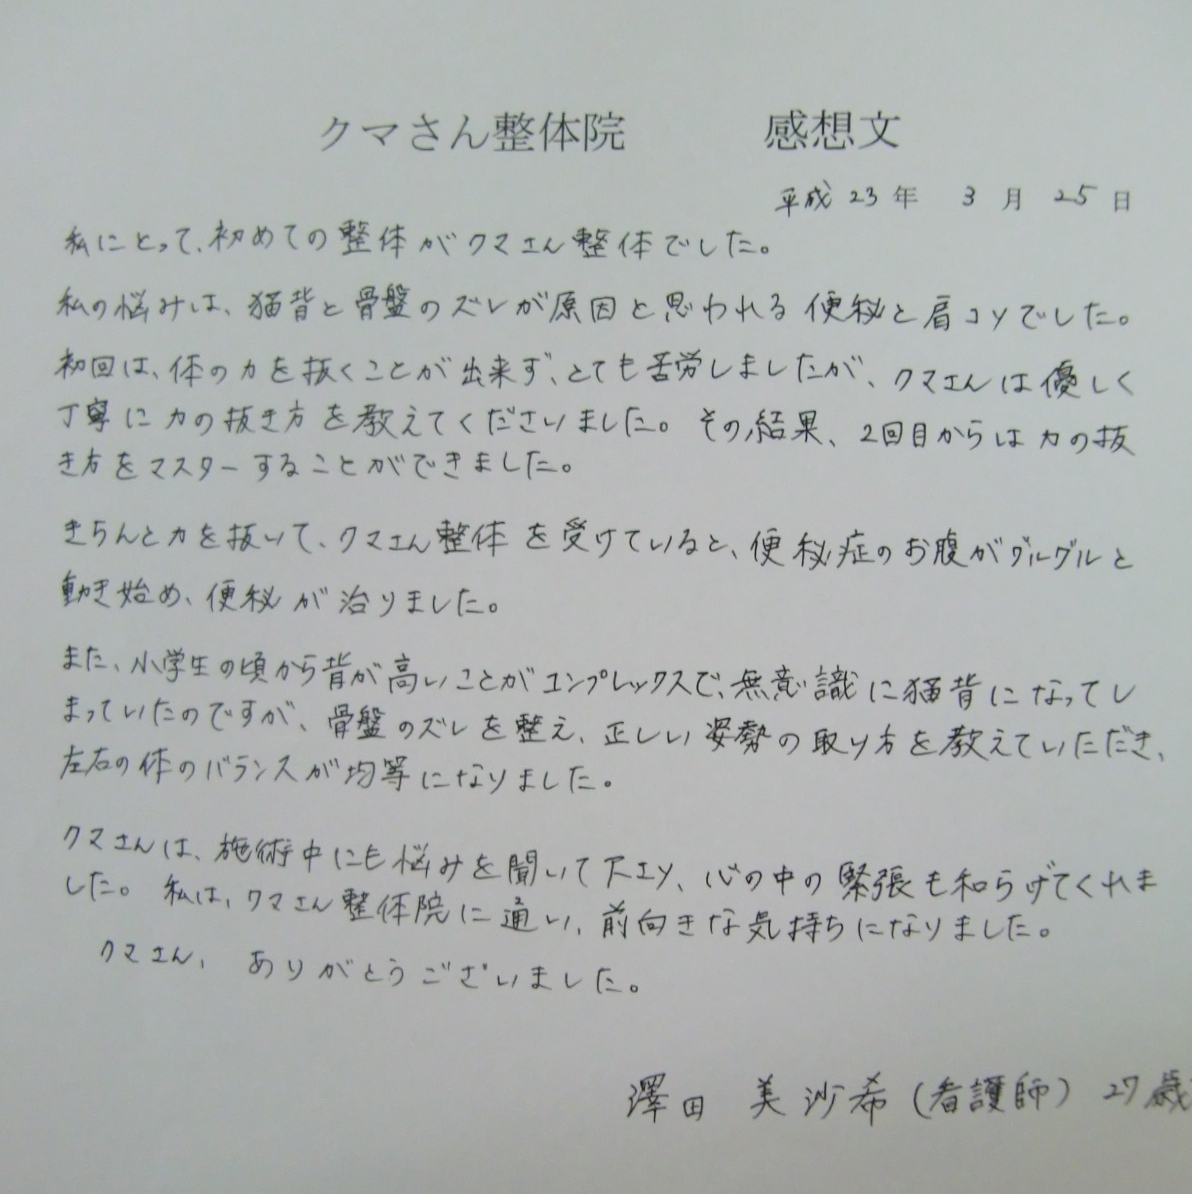 クマさん整体院　　感想文
平成 23 年 3 月 25 日
私にとって、初めての整体がクマさん整体でした。
私の悩みは、猫背と骨盤のズレが原因と思われる便秘と肩コリでした。
初回は、体の力を抜くことが出来ず、とても苦労しましたが、クマさんは優しく
丁寧に力の抜き方を教えてくださいました。その結果、2回目からは力の抜
き方をマスターすることができました。
きちんと力を抜いて、クマさん整体を受けていると、便秘症のお腹がグルグルと
動き始め、便秘が治りました。
また、小学生の頃から背が高いことがコンプレックスで、無意識に猫背になってし
まっていたのですが、骨盤のズレを整え、正しい姿勢の取り方を教えていただき、
左右の体のバランスが均等になりました。
クマさんは、施術中にも悩みを聞いて下さり、心の中の緊張も和らげてくれま
した。私は、クマさん整体院に通い、前向きな気持ちになりました。
クマさん、ありがとうございました。
澤田 美沙希（看護師）27歳